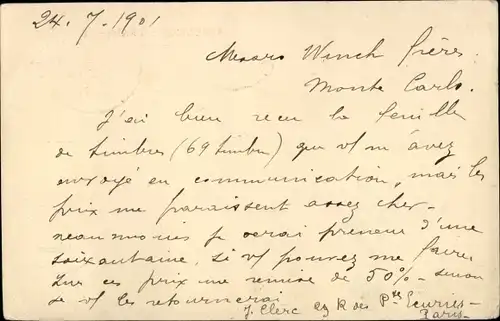 24. 7. 1901
Messrs Winch frères
Monte Carlo.
J'ai bien recu la feuille
de timbres (69 timbres) que vs m'avez
envoyé en communication, mais les
prix me paraissent assez cher
neanmoins je serai preneur d'une
soixantaine, si vs pouvez me faire
sur ces prix une remise de 50% - sinon
je vs les retournerai
J. Clerc 23 R des Ptes Ecuries
Paris